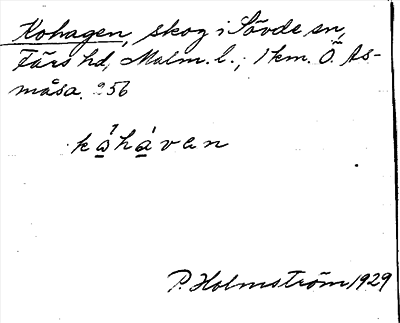 Kohagen, skog i Sövde sn,
Färs hd, Malm. l.; 1 km. Ö. As-
måsa. 256
kåhåvan
P. Holmström 1929